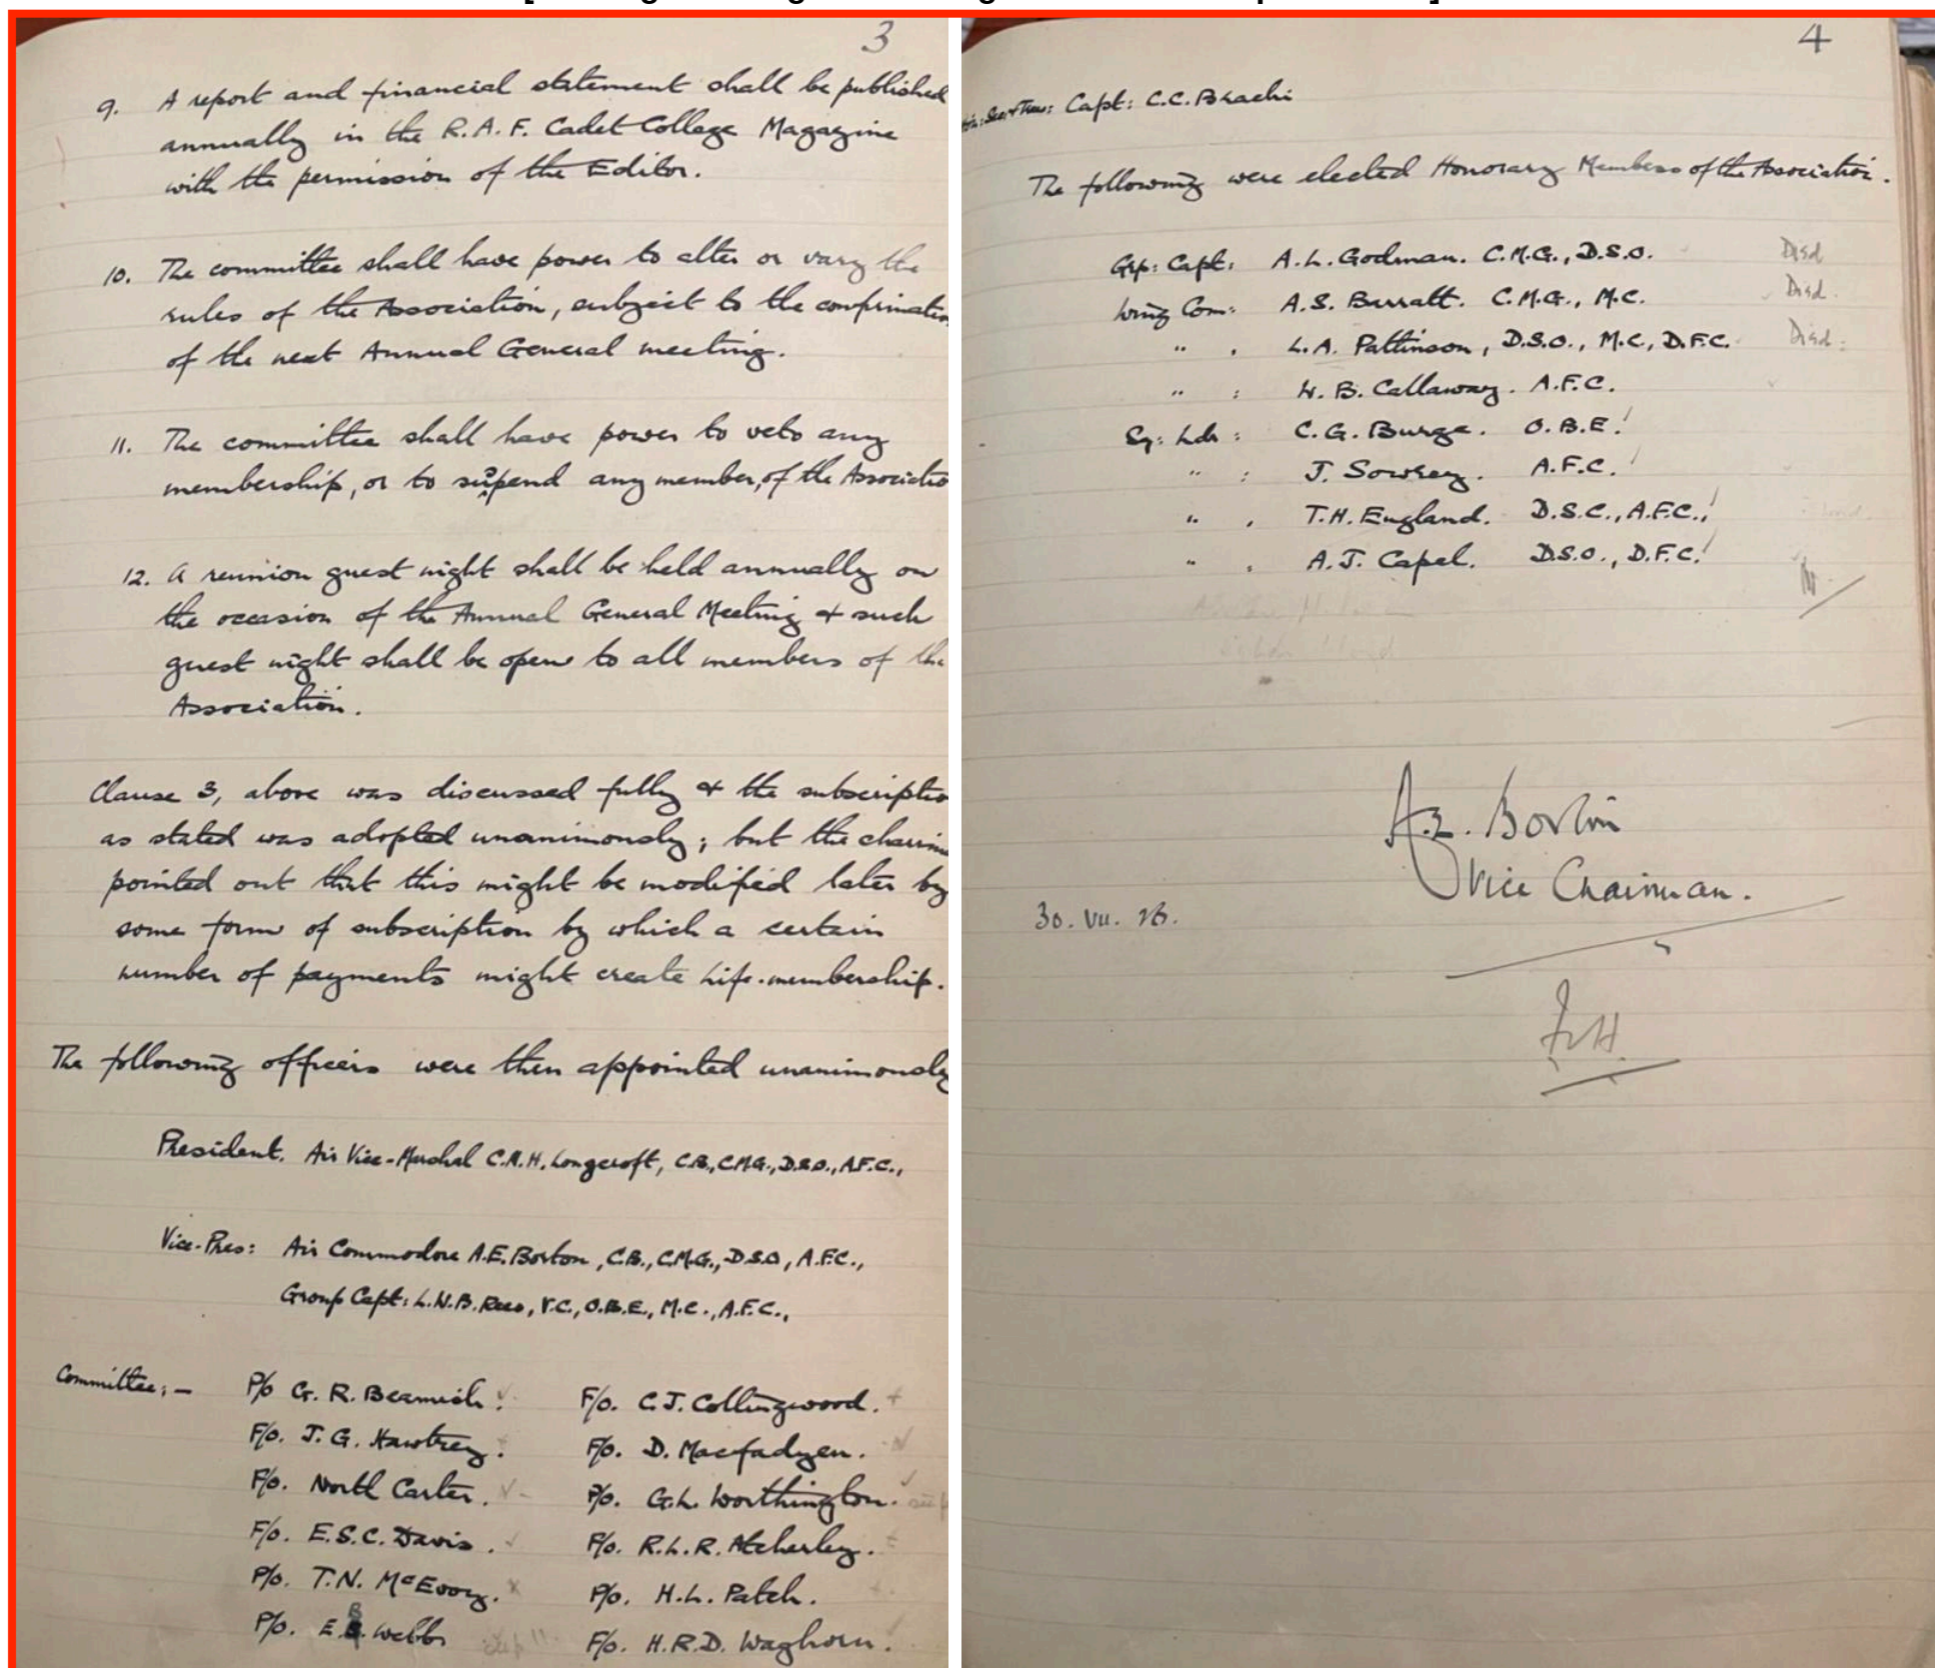 3
9. A report and financial statement shall be published
annually in the R.A.F. Cadet College Magazine
with the permission of the Editor.
10. The committee shall have power to alter or vary the
rules of the Association, subject to the confirmatio
of the next Annual General meeting.
11. The committee shall have power to veto any
membership, or to suspend any member, of the Associatio
12. A reunion guest night shall be held annually on
the occasion of the Annual General Meeting & such
guest night shall be open to all members of the
Association.
Clause 3, above was discussed fully & the subscriptio
as stated was adopted unanimously; but the chairm
pointed out that this might be modified later by
some form of subscription by which a certain
number of payments might create Life-membership.
The following officers were then appointed unanimously
President. Air Vice-Marshal C.A.H. Longcroft, C.B., C.M.G., D.S.O., A.F.C.,
Vice-Pres: Air Commodore A.E. Borton, C.B., C.M.G., D.S.O, A.F.C.,
Group Capt: L.W.B. Rees, V.C., O.B.E., M.C., A.F.C.,
Committee: —
P/o G. R. Beamish. F/o. C.J. Collingwood.
F/o. J. G. Hawtrey. F/o. D. Macfadyen.
F/o. North Carter. P/o. G.L. Worthington.
F/o. E.S.C. Davis. F/o. R.L.R. Atcherley.
P/o. T.N. McEvoy. P/o. H.L. Patch.
P/o. E.B. Webb F/o. H.R.D. Waghorn.
4
Hon: Sec. & Treas: Capt: C.C. Brachi
The following were elected Honorary Members of the Association.
Grp: Capt: A.L. Godman. C.M.G., D.S.O. Died
Wing Com: A.S. Barratt. C.M.G., M.C. Died.
" , L.A. Pattinson, D.S.O., M.C., D.F.C. Died.
" : W. B. Callaway. A.F.C.
Sq: Ldr: C.G. Burge. O.B.E.
" : J. Sowrey. A.F.C.
" , T.H. England. D.S.C., A.F.C.,
" , A.J. Capel. D.S.O., D.F.C.
A.E. Borton
Vice Chairman.
30. VII. 26.